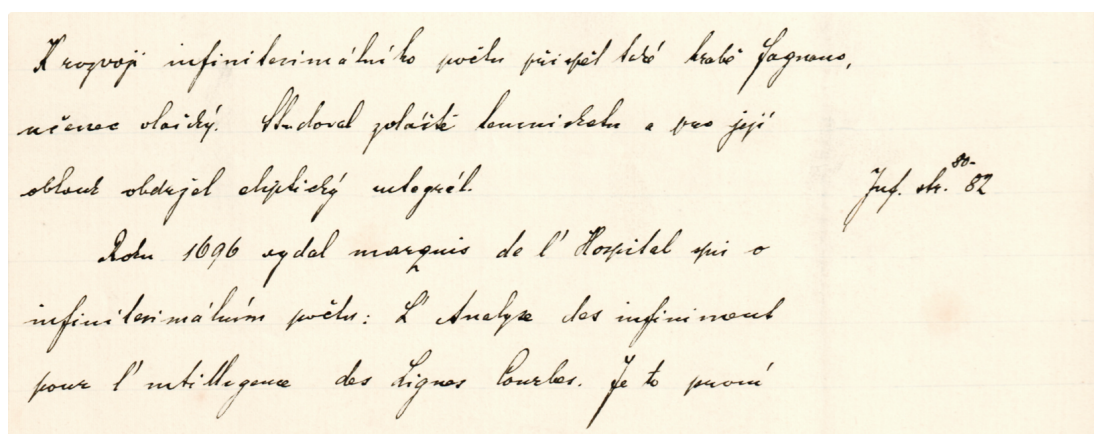 K rozvoji infinitesimálního počtu přispěl také hrabě Fagnano,
učenec vlašský. Studoval zvláště lemniskatu a pro její
oblouk obdržel eliptický integrál.
Inf. str. 80-82
Roku 1696 vydal marquis de l' Hospital spis o
infinitesimálním počtu: L' Analyse des infiniment
pour l' intillegence des Lignes Courbes. Je to první